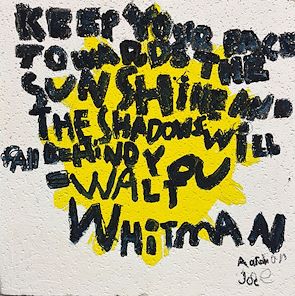 KEEP YOUR FACE
TOWARDS THE
SUNSHINE AND
THE SHADOWS WILL
FALL BEHIND Y
OU
=WALT
WHiTMAN